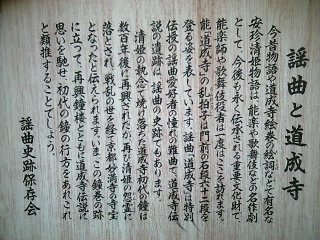 謡曲と道成寺
今昔物語や道成寺絵巻の絵詞などで有名な
安珍清姫物語は、能楽や歌舞伎などの名作劇
として、今後も永く伝承される重要文化財で、
能楽師や歌舞伎役者は一度はここを訪れます。
能「道成寺」の乱拍子は門前の石段六十二段を
登る姿を表しています。謡曲「道成寺」は特別
伝授の謡曲愛好者の憧れの難曲で、道成寺伝
説の遺跡は、謡曲の史跡でもあります。
清姫の執念で焼け落ちた道成寺初代の鐘は
数百年後に再興されたが、再び清姫の怨霊に
落とされ、戦乱の世を経て京都妙満寺の寺宝
となったと伝えられます。いまこの鐘巻の跡
に立って、再興鐘楼とともに道成寺伝説に
思いを馳せ、初代の鐘の行方をあれこれ
と類推することでしょう。
謡曲史跡保存会